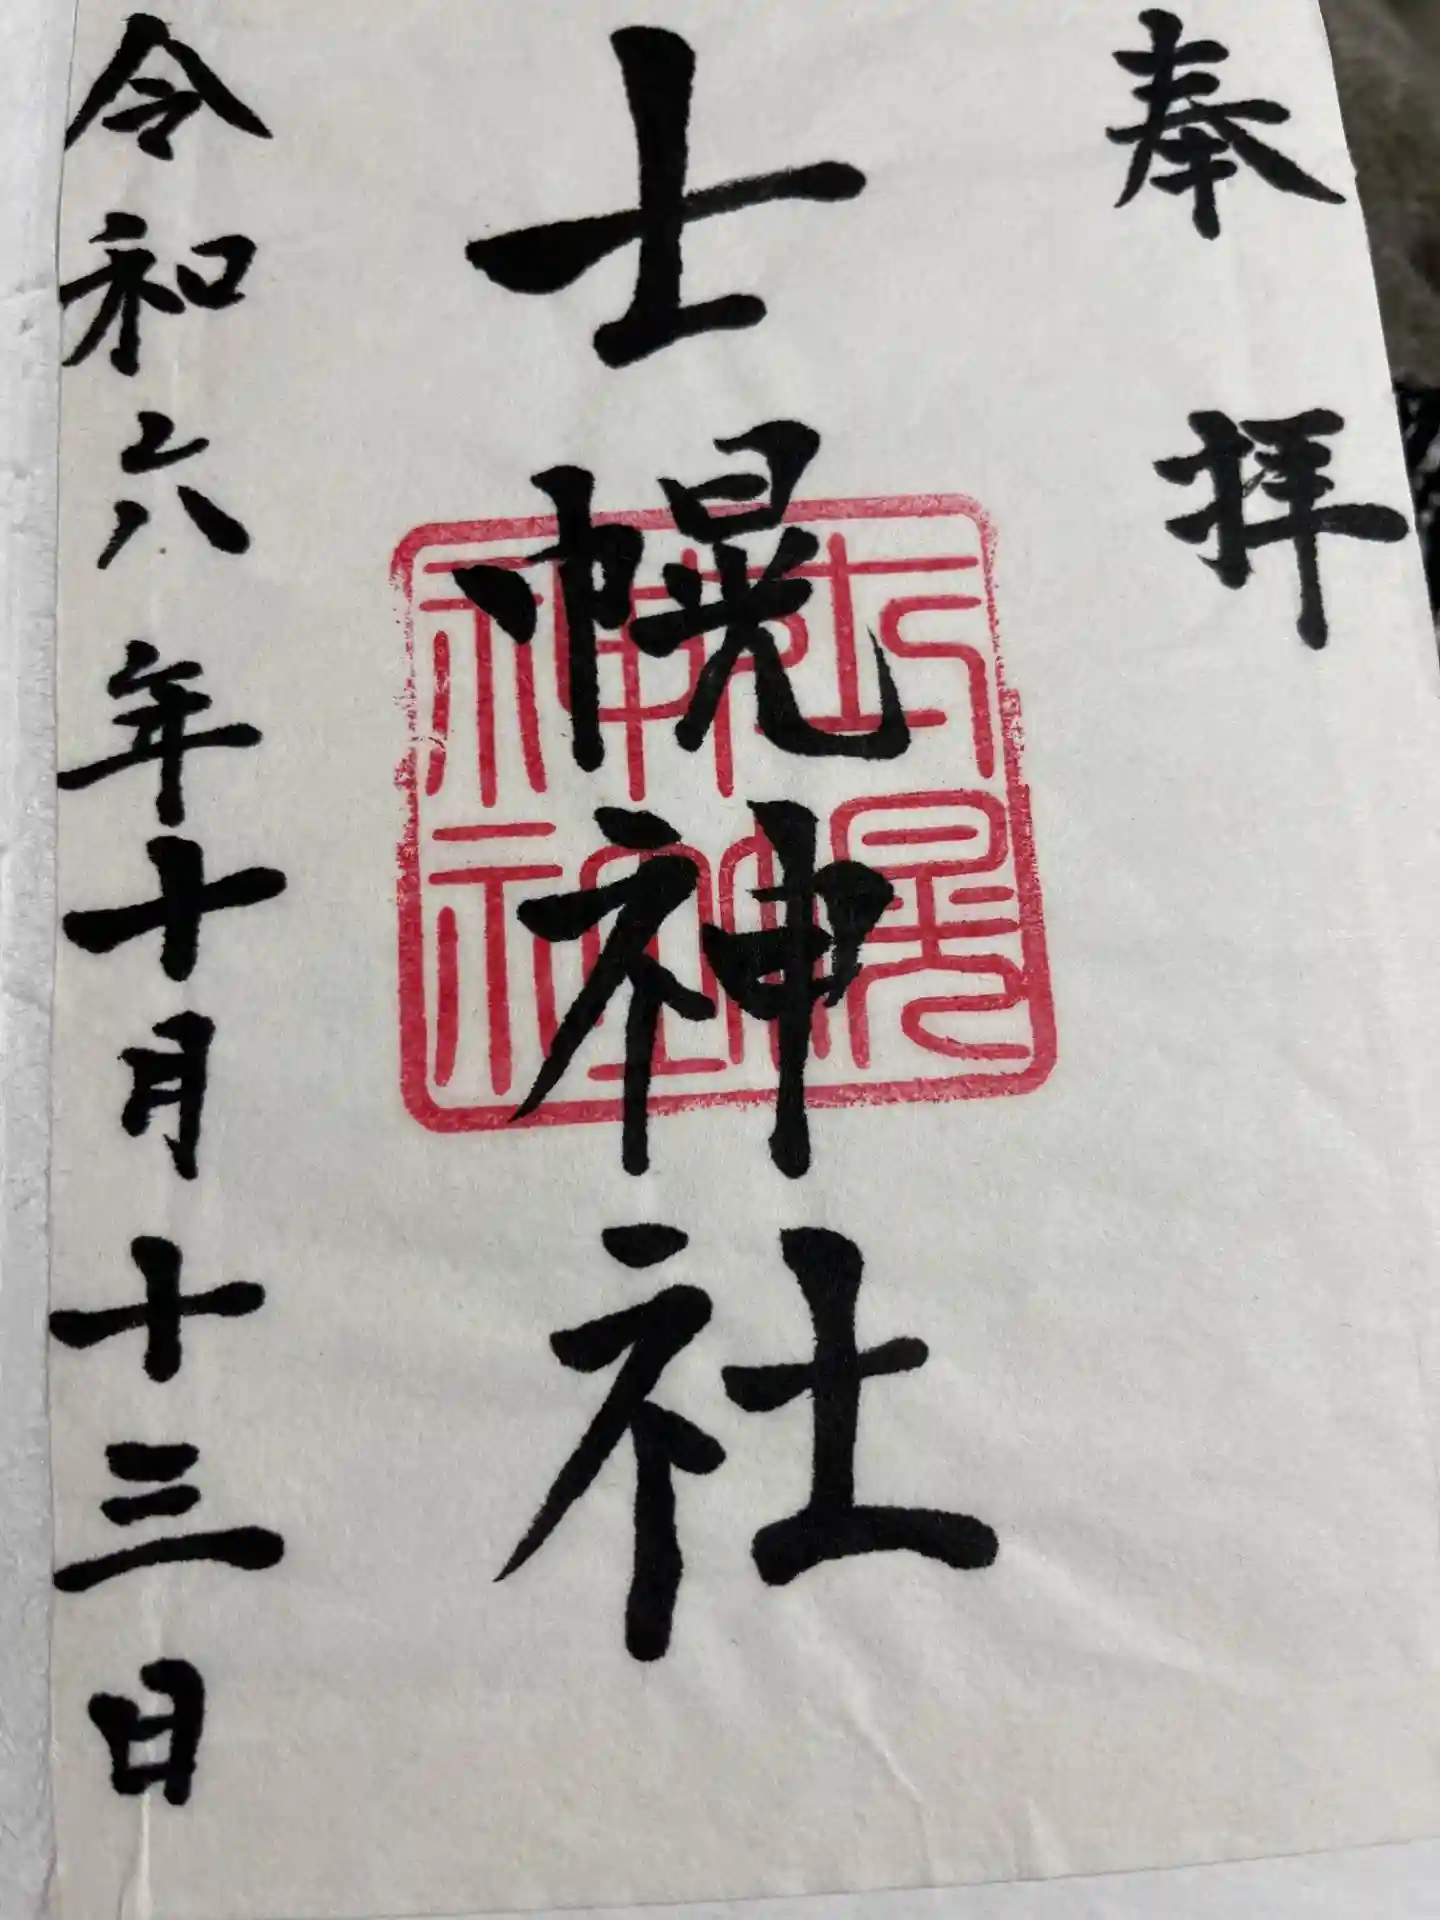 奉拝
士幌神社
士幌神社
令和六年十月十三日